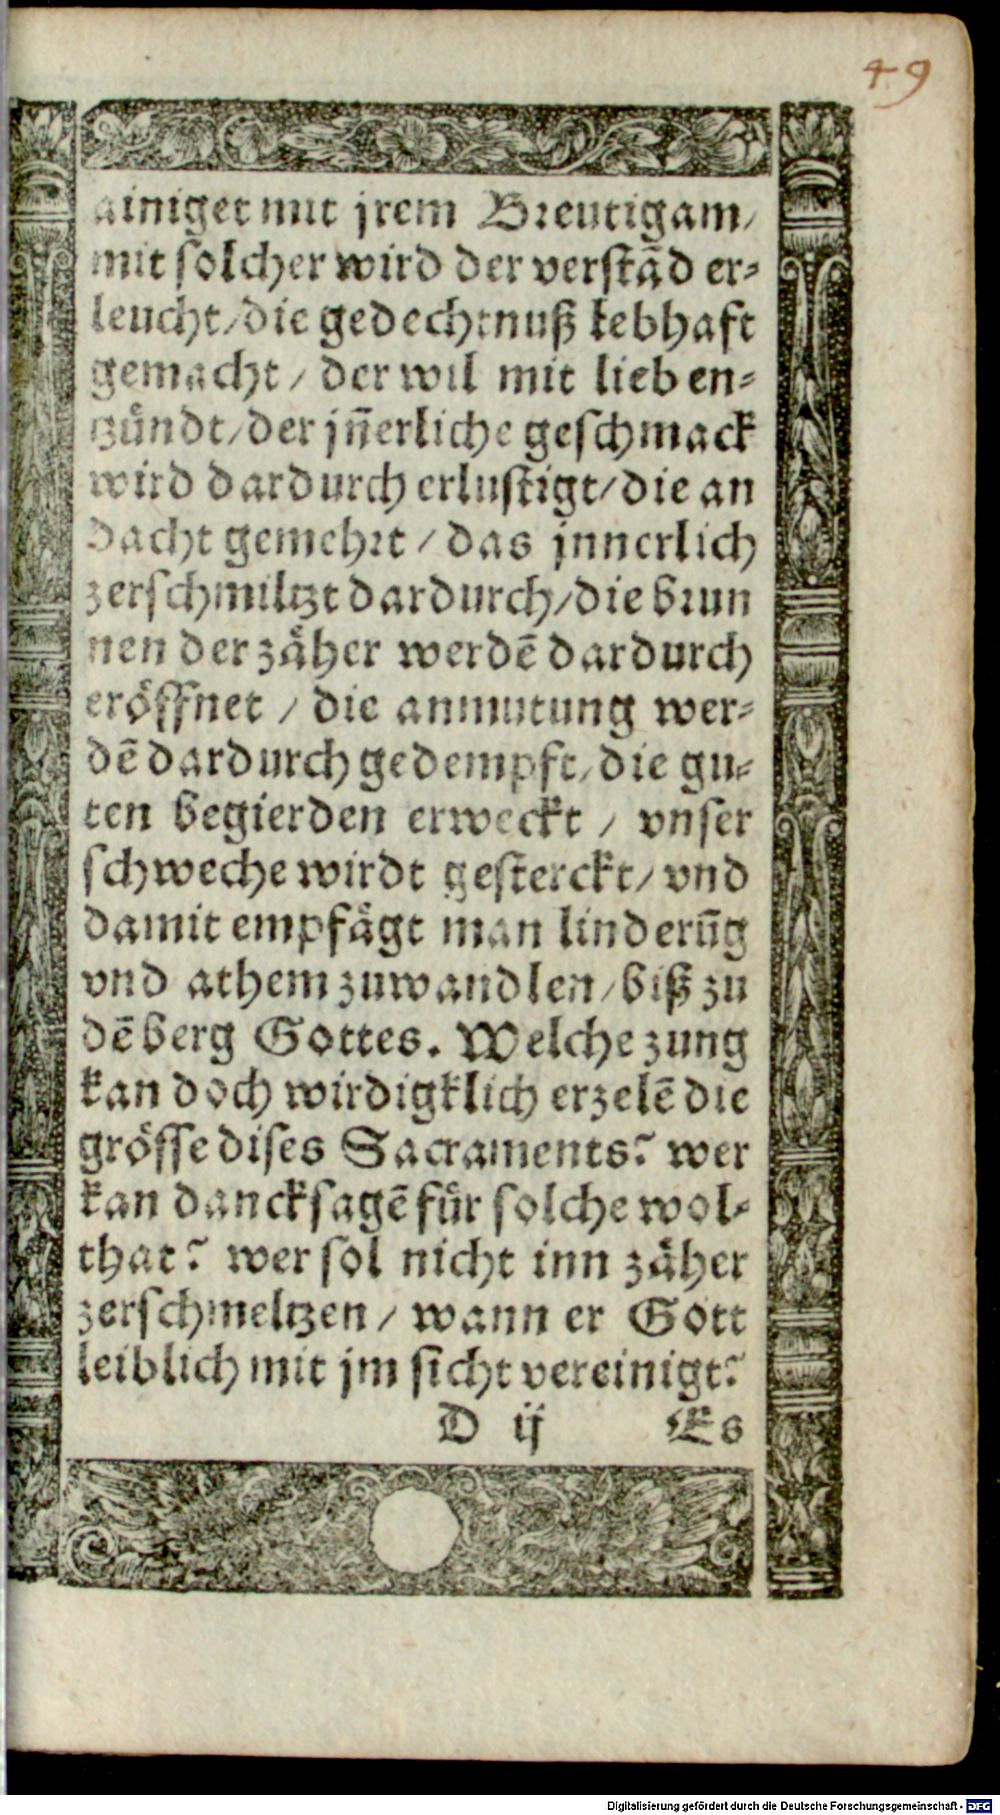 49
ainiget mit jrem Breutigam/
mit solcher wird der verstãd er⸗
leucht/die gedechtnuß lebhafft
gemacht / der wil mit lieb en⸗
tzündt/der jñerliche geschmack
wird dardurch erlustigt/die an
dacht gemehrt / das jnnerlich
zerschmiltzt dardurch/die brun
nen der zäher werdẽ dardurch
eröffnet / die anmutung wer⸗
dẽ dardurch gedempft/die gu⸗
ten begierden erweckt / vnser
schweche wirdt gesterckt/vnd
damit empfãgt man linderũg
vnd athem zuwandlen/biß zu
dẽ berg Gottes. Welche zung
kan doch wirdigklich erzelẽ die
grösse dises Sacraments? wer
kan dancksagẽ für solche wol⸗
that? wer sol nicht inn zäher
zerschmeltzen / wann er Gott
leiblich mit jm sicht vereinigt?
D ij Es
Digitalisierung gefördert durch die Deutsche Forschungsgemeinschaft - DFG